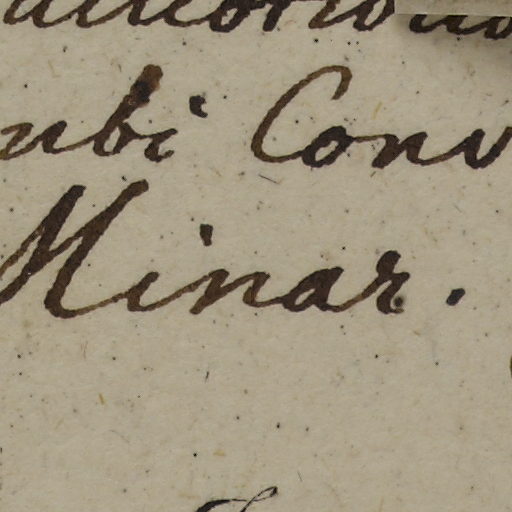 ubi Conv
Minar.